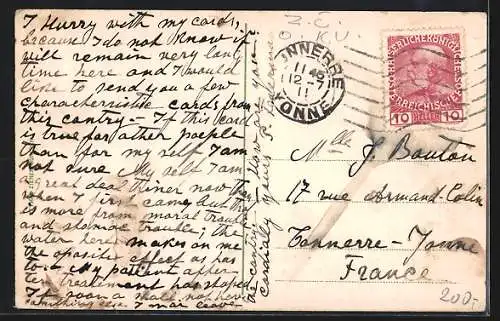 I Hurry with my cards,
because I do not know if
will remain very long
time here and I would
like to send you a few
characheristic cards from
this contry — If this card
is true for other poeple
than for my self I am
not sure My self I am
a real deal thiner now than
when I first came but this
is more from moral trouble
and stomac trouble; the
water here makes on me
the oposite effect as has
to — My patient after
treatement has stoped
If soon a shall not have
something else I mai leave
the contry
cordially yours
Z. C.
O. K. U.
TONNERRE
11 45
12 - 7
11
YONNE
KAISERLICHEKÖNIGLICHE
ÖSTERREICHISCHE
10 HELLER 10
Mlle J. Bouton
17 rue Armand-Colin
Tonnerre - Yonne
France
200.-